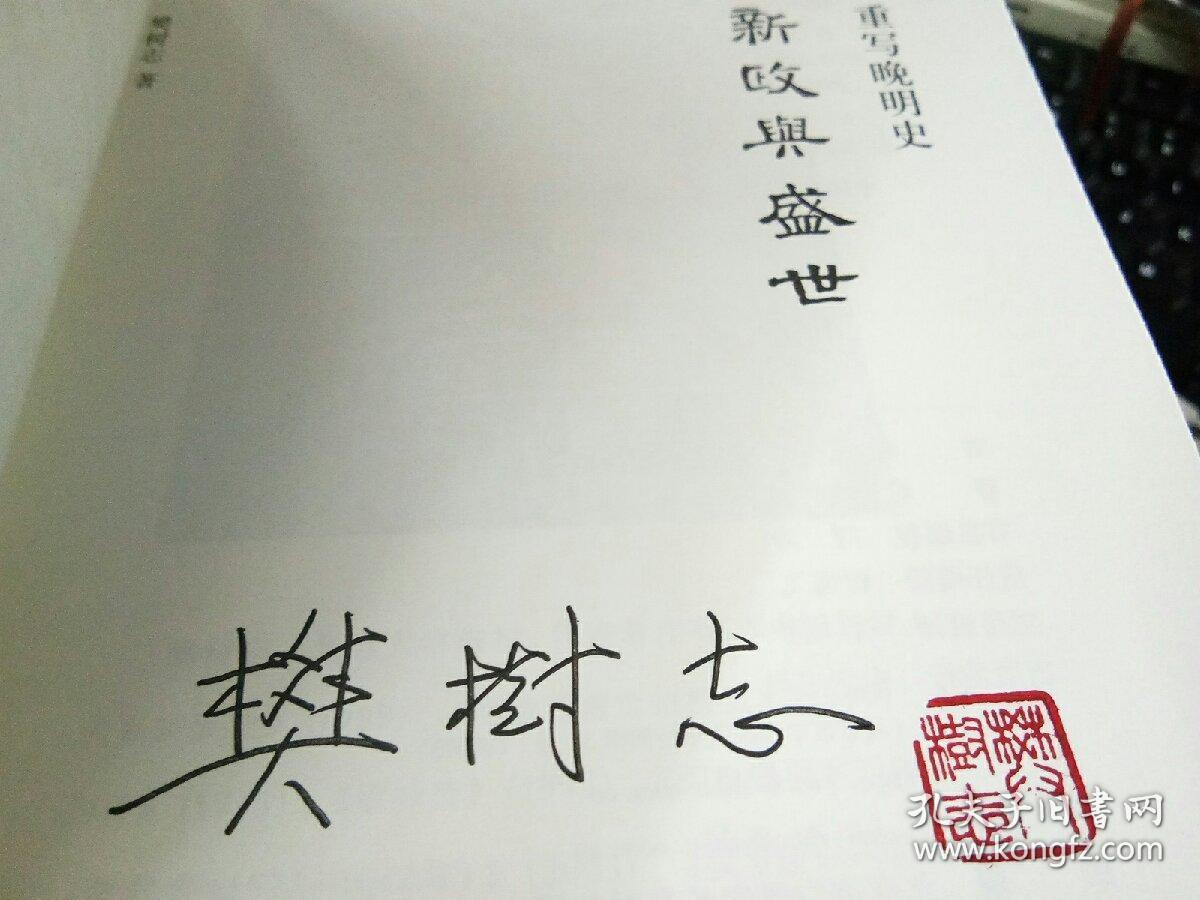 重写晚明史
新政與盛世
樊樹志
孔夫子旧書网
www.kongfz.com